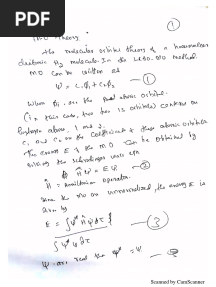 PDF
1
MO Theory
The molecular orbital theory of a homonuclear
diatomic H2 molecule. In the LCAO-MO method.
MO can be written as
ψ = c1φ1 + c2φ2 — 1
Where φ1 are the atomic orbitals.
(in this case, two 1s orbitals) centered on
hydrogen atoms, 1 and 2.
c1 and c2 are the coefficients of these atomic orbitals
The energy E of the MO can be obtained by
solving the Schrodinger wave eqn
Ĥ ψ = E ψ — 2
Ĥ = Hamiltonian operator.
Since the MO are unnormalized, the energy E is
given by
E = ∫ψ* Ĥ ψ dτ — 3
∫ψ* ψ dτ
real the ψ* = ψ
Scanned by CamScanner